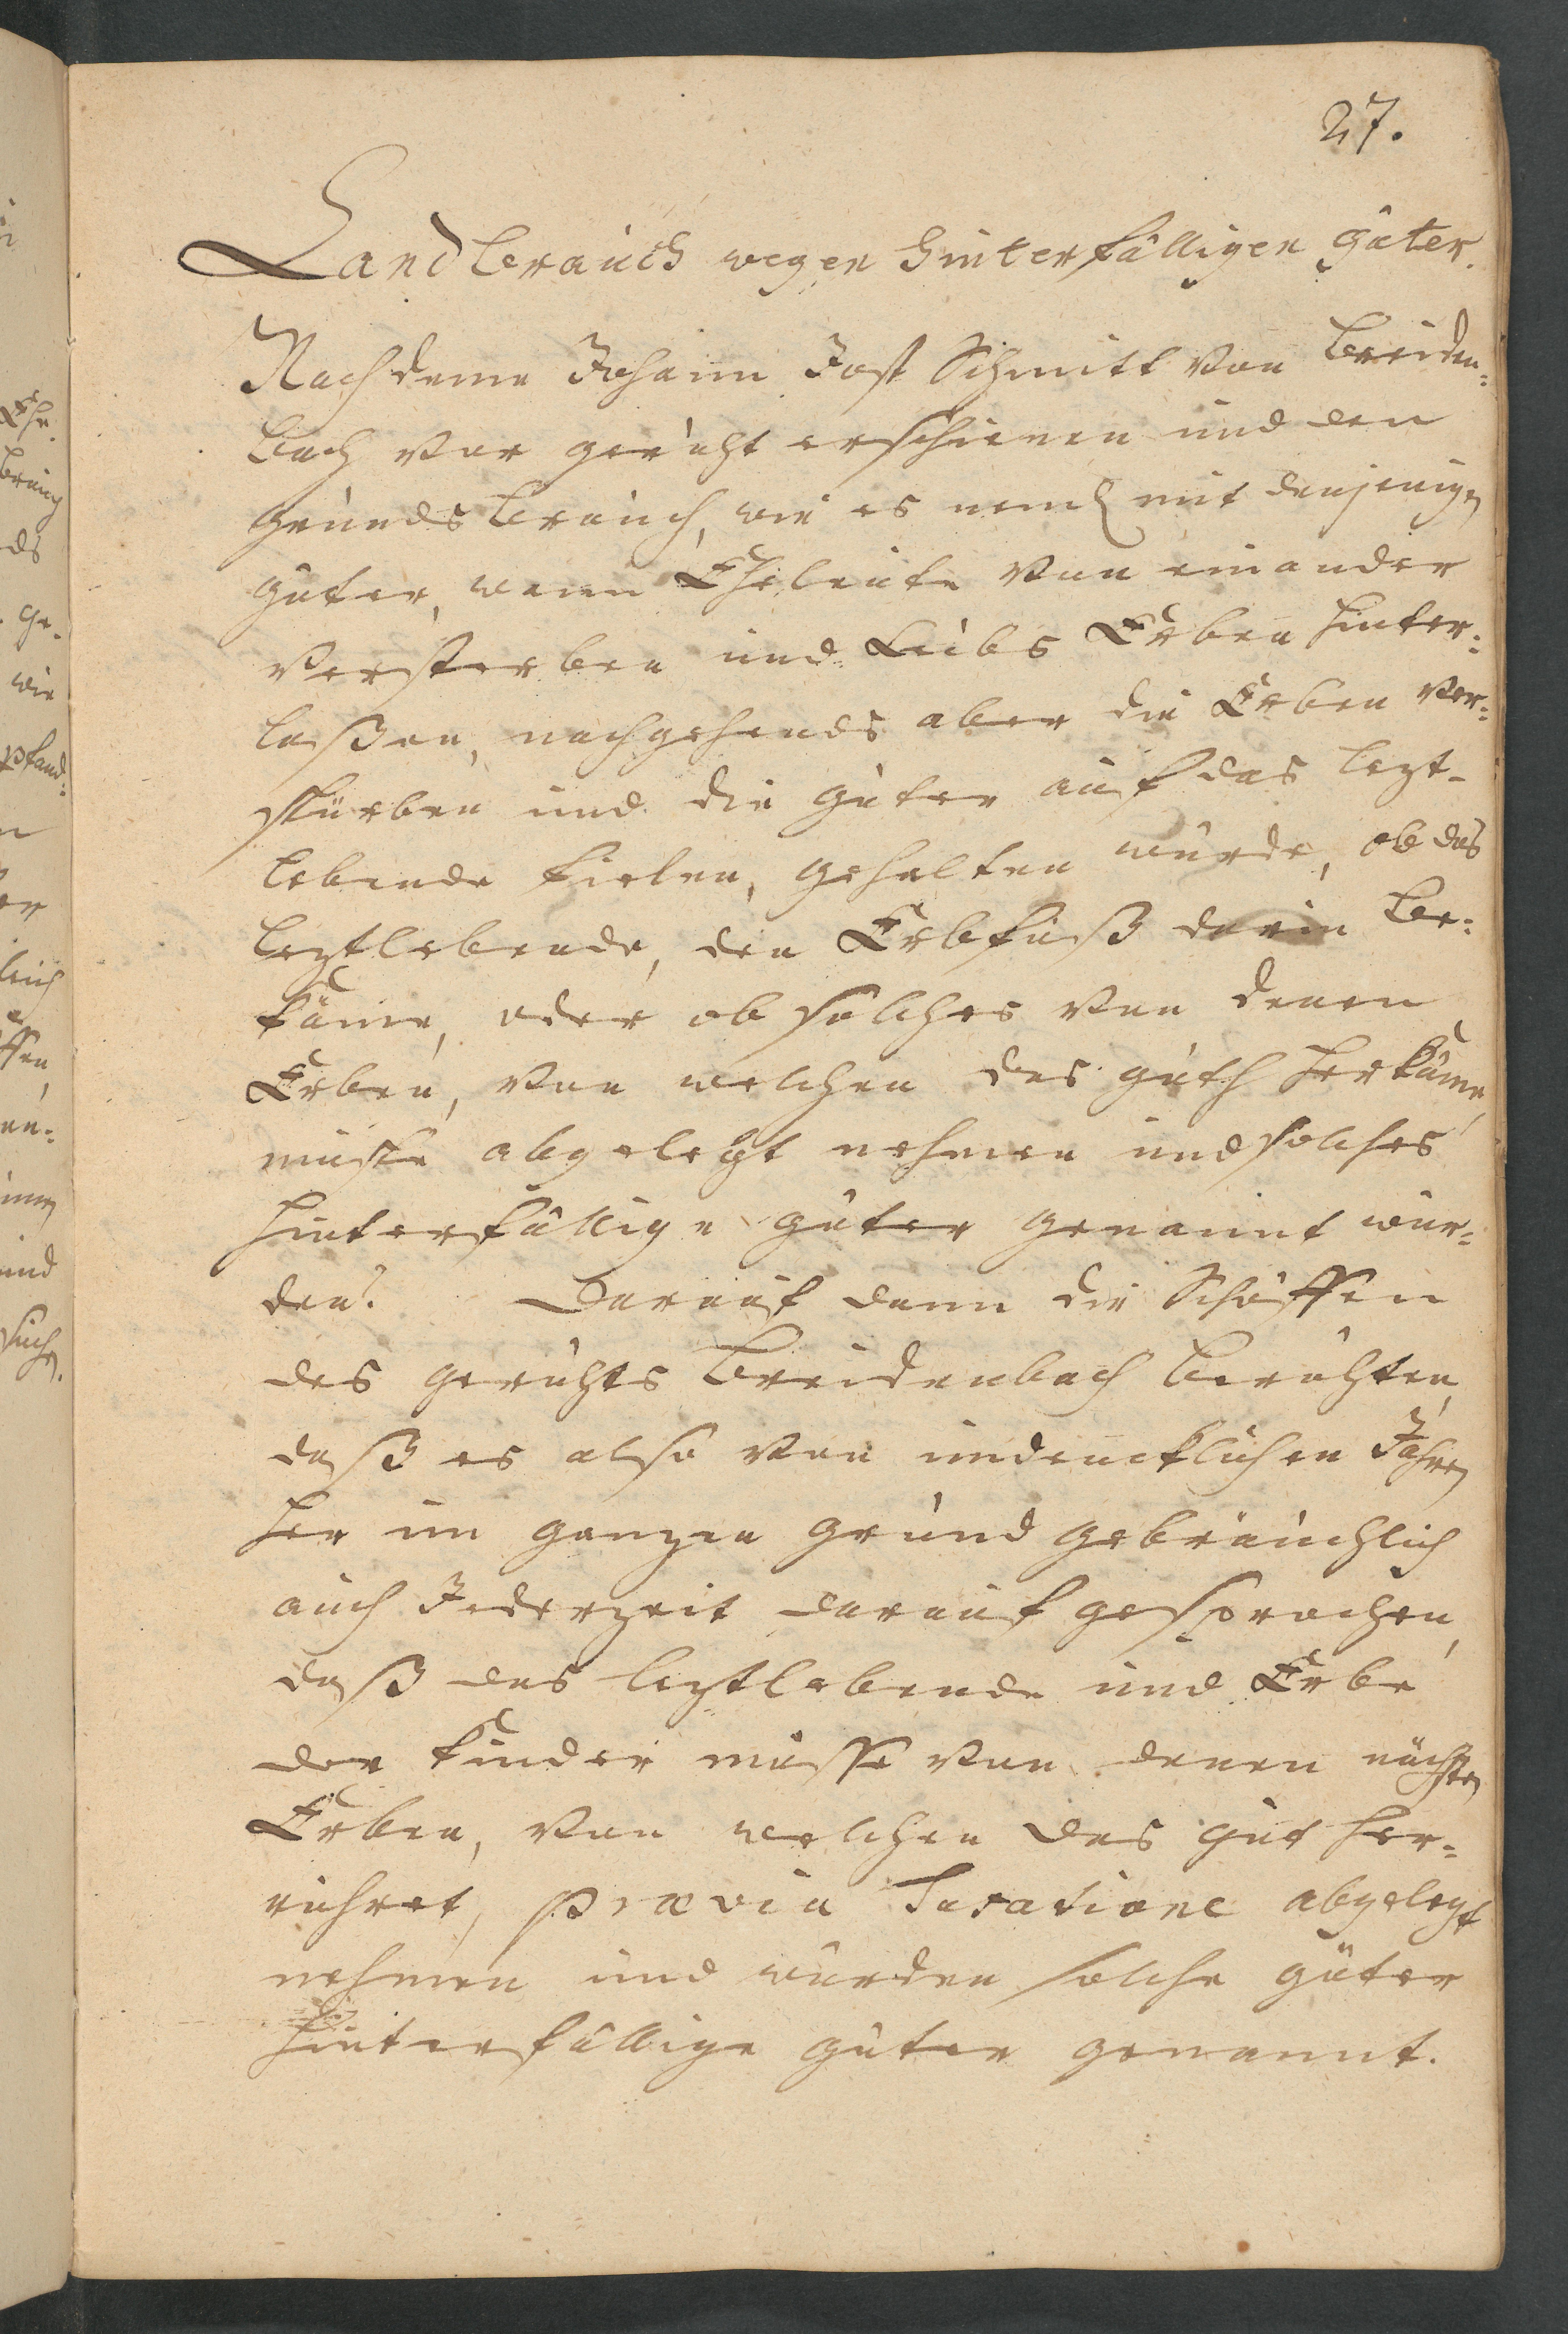 27.
Landbrauch wegen hinterfälligen Güter.
Nachdeme Johann Jost Schmitt von Breiden:
bach vor gericht erschienen und den
grunds brauch, wie es neml. mit denjenigen
güter, wenn Eheleute von einander
versterben und Leibs Erben hinter:
laßen, nachgehends aber die Erben ver:
stürben und die güter auf das lezt-
lebende fielen, gehalten würde, ob das
leztlebende, den Erbfuß darin be:
käme, oder ob solches von denen
Erben, von welchen das guth herkäme,
müste abgelegt nehmen und solches
hinterfällige güter genannt wür:
den? Darauf dann die Schöffen
des gerichts Breidenbach berichten,
daß es also von undencklichen Jahren
her im ganzen grund gebräuchlich
auch Jederzeit darauf gesprochen,
daß das leztlebende und Erbe
der Kinder müsse von denen nächsten
Erben, von welchen das gut her:
rühret, prævia Taxatione abgelegt
nehmen und würden solche güter
hinterfällige güter genannt.
Ehe.
brauch
ds
ge-
wie
pfand:
n
er
lich
ffen
en:
imm
und
such.